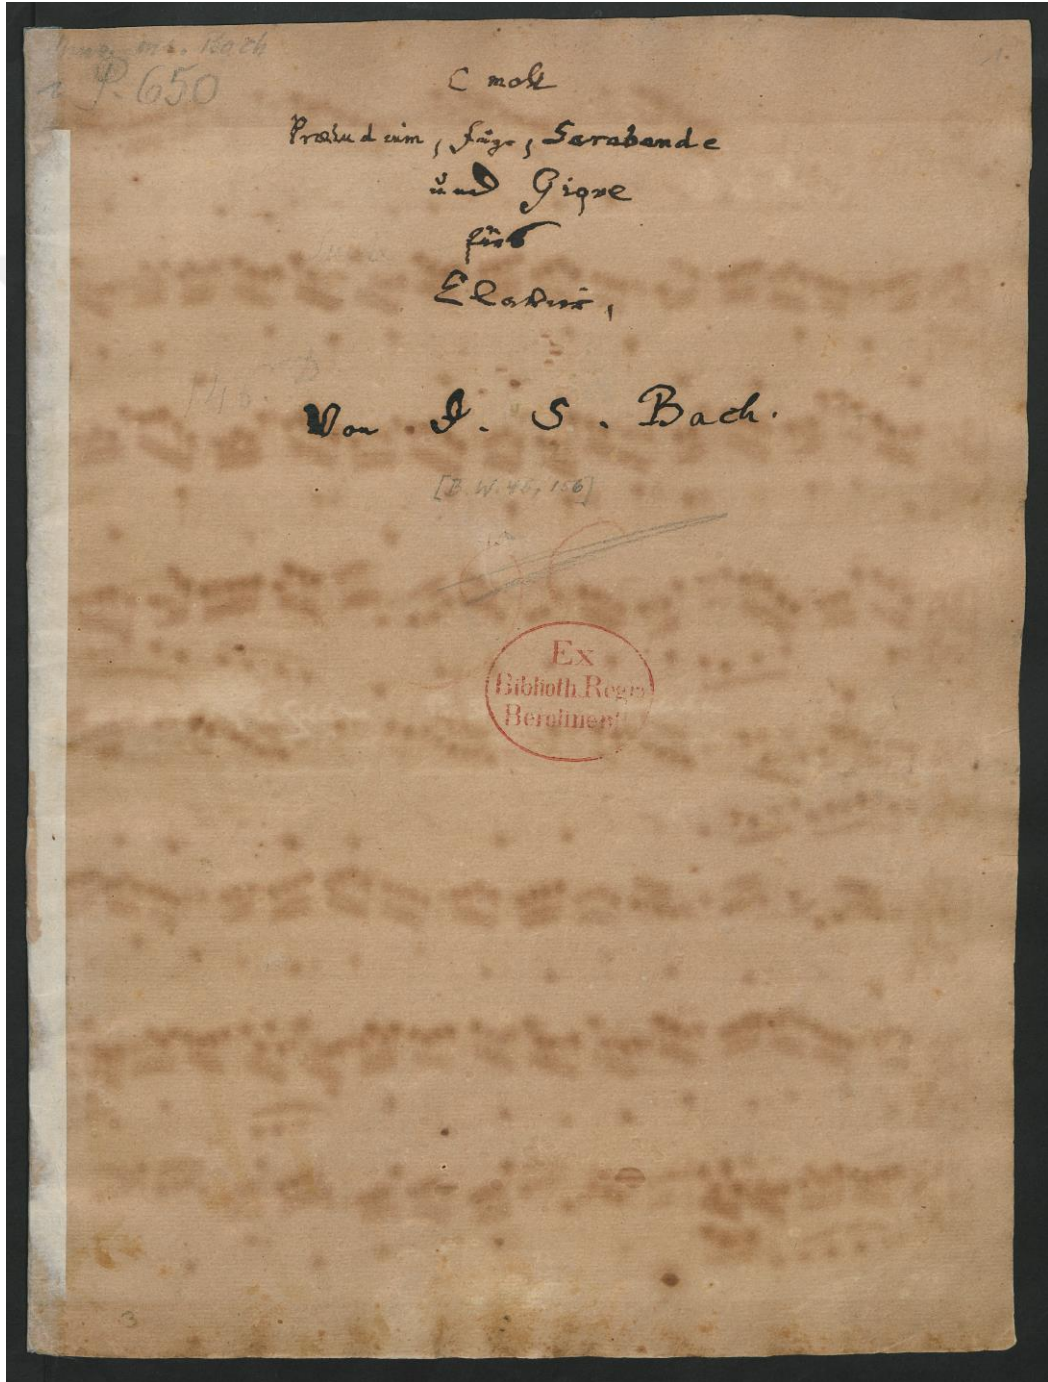 Mus. ms. Bach
P. 650
1.
C moll
Præludium, Fuge, Sarabande
und Gique
fürs
Clavier,
Von J. S. Bach.
[B. W. 45, 156]
Ex
Biblioth. Regia
Berolinensi
3